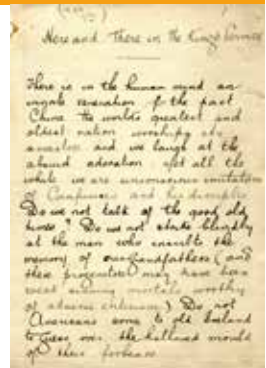 Here and There in the King's Service
There is in the human mind an
innate veneration of the past
China the worlds greatest and
oldest nation worships its
ancestors and we laugh at the
absurd adoration yet all the
while we are unconscious imitators
of Confucius and his disciples
Do we not talk of the good old
times? Do we not strike blindly
at the man who insults the
memory of our grandfathers (and
these progenitors may have been
most sinning mortals worthy
of) Do not
Americans come to old England
to over the hallowed mould
of their forbears